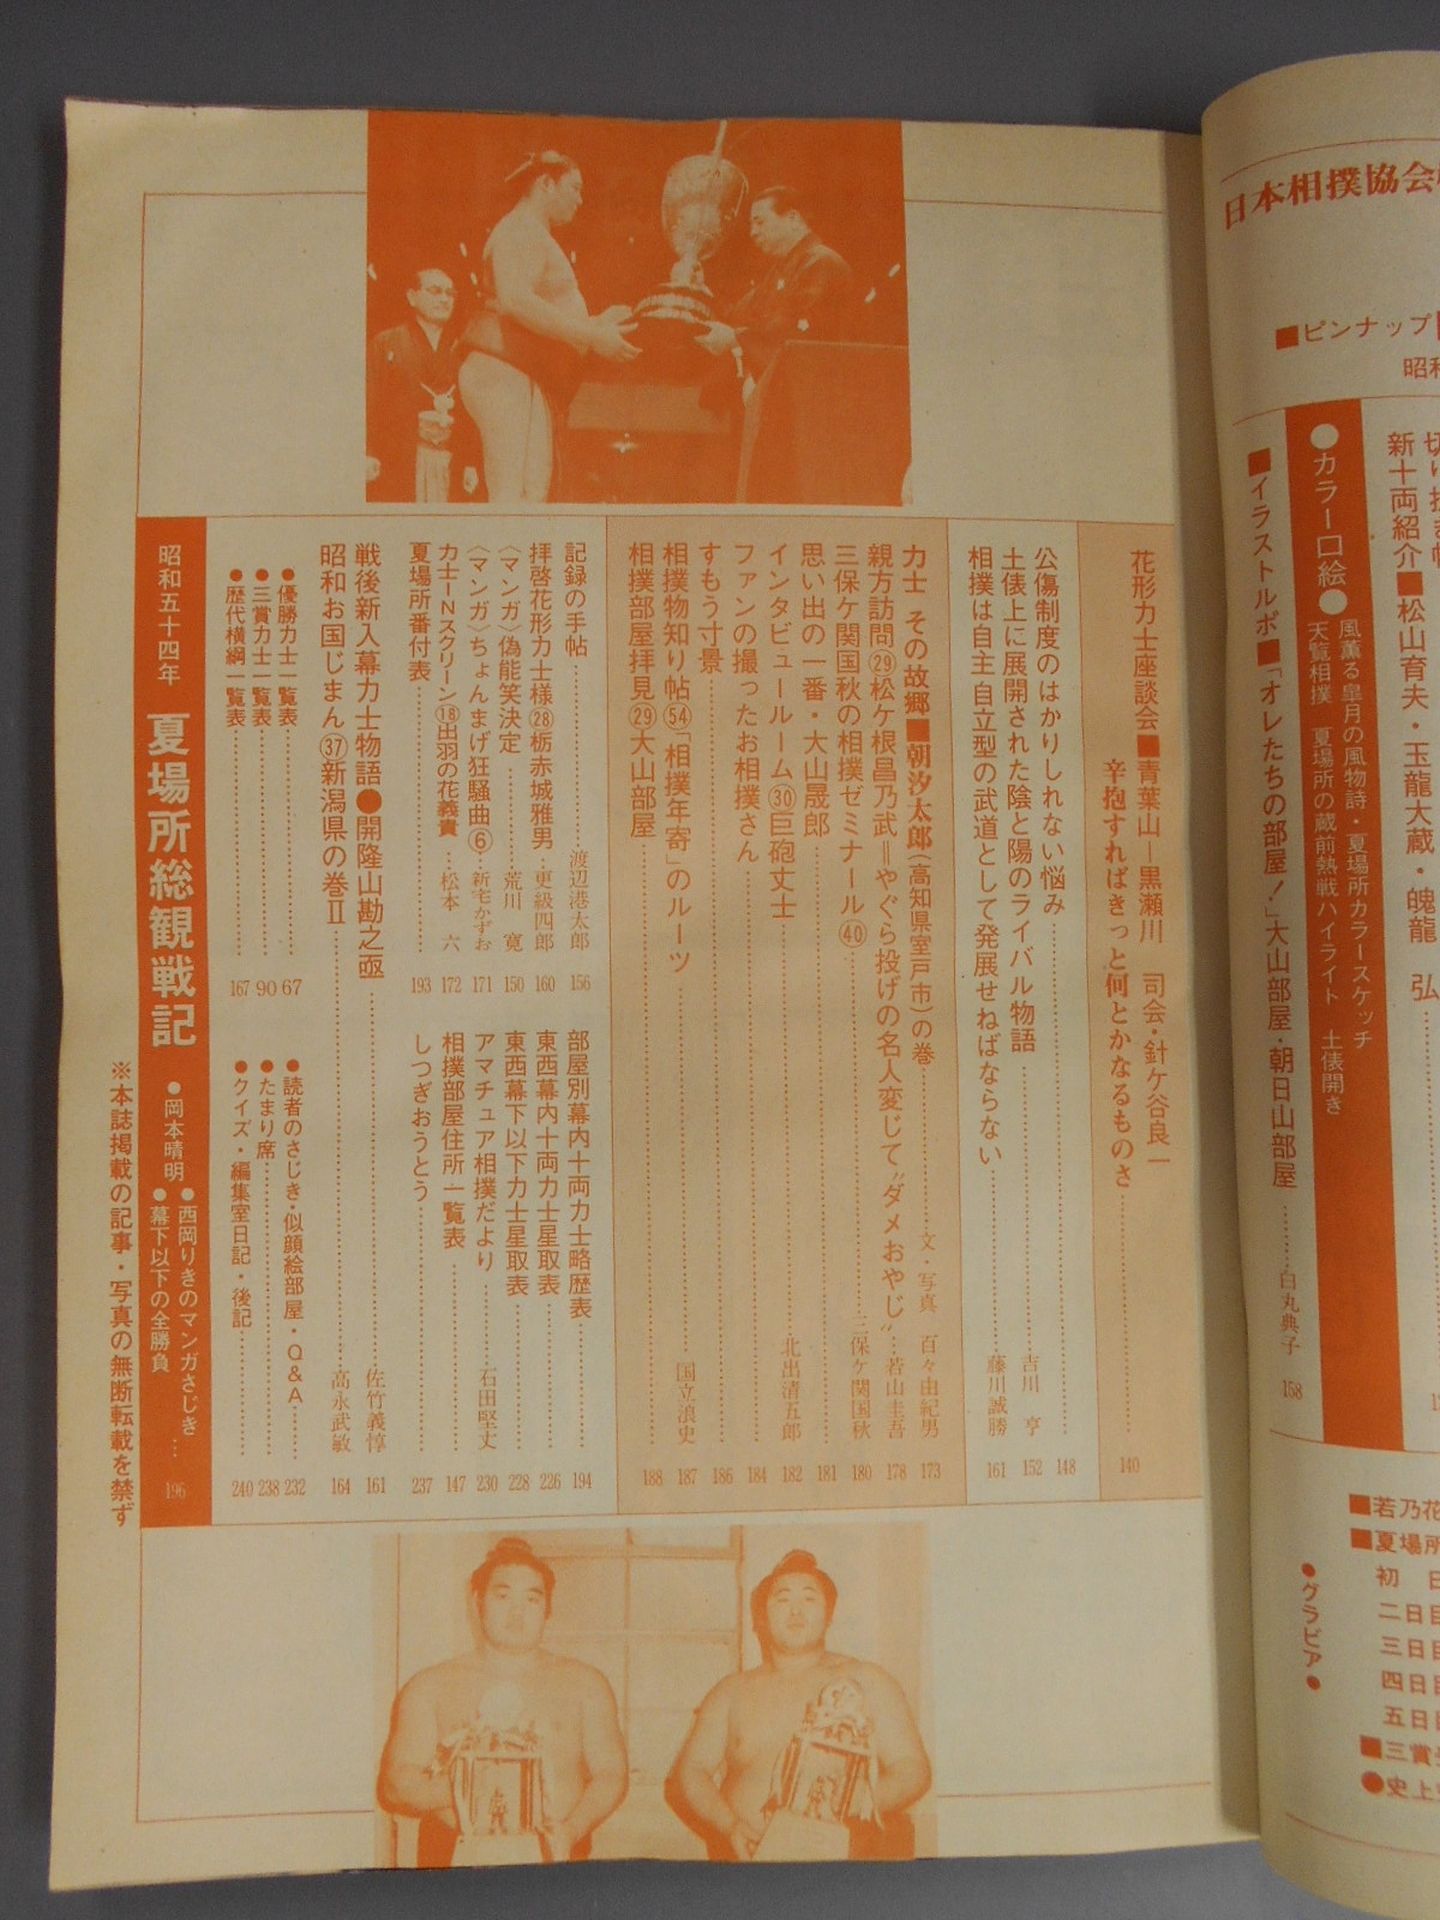 日本相撲協会
■ピンナップ
新十両紹介■松山育夫・玉龍大蔵・魄龍 弘
●カラー口絵●
風薫る皐月の風物詩・夏場所カラースケッチ
天覧相撲 夏場所の蔵前熱戦ハイライト 土俵開き
■イラストルポ■「オレたちの部屋!」大山部屋・朝日山部屋……白丸典子 158
■若乃花
■夏場所
初 日
二日目
三日目
四日目
五日目
■三賞
●史上
●グラビア●
花形力士座談会■青葉山―黒瀬川 司会・針ケ谷良一
辛抱すればきっと何とかなるものさ……140
公傷制度のはかりしれない悩み……148
土俵上に展開された陰と陽のライバル物語……吉川 亨 152
相撲は自主 自立型の武道として発展せねばならない……藤川誠勝 161
力士 その故郷■朝汐太郎(高知県室戸市)の巻……文・写真 百々由紀男 173
親方訪問㉙松ケ根昌乃武=やぐら投げの名人変じて“ダメおやじ”…若山圭吾 178
三保ケ関国秋の相撲ゼミナール㊵……三保ケ関国秋 180
思い出の一番・大山晟郎……181
インタビュールーム㉚巨砲丈士……北出清五郎 182
ファンの撮ったお相撲さん……184
すもう寸景……186
相撲物知り帖(54)「相撲年寄」のルーツ……国立浪史 187
相撲部屋拝見㉙大山部屋……188
記録の手帖……渡辺港太郎 156
拝啓花形力士様㉘栃赤城雅男…更級四郎 160
〈マンガ〉偽能笑決定……荒川 寛 150
〈マンガ〉ちょんまげ狂騒曲⑥…新宅かずお 171
力士INスクリーン⑱出羽の花義貴…松本 六 172
夏場所番付表……193
部屋別幕内十両力士略歴表……194
東西幕内十両力士星取表……226
東西幕下以下力士星取表……228
アマチュア相撲だより……石田堅丈 230
相撲部屋住所一覧表……147
しつぎおうとう……237
戦後新入幕力士物語●開隆山勘之亟……佐竹義惇 161
昭和お国じまん㊲新潟県の巻Ⅱ……高永武敏 164
●優勝力士一覧表……67
●三賞力士一覧表……90
●歴代横綱一覧表……167
●読者のさじき・似顔絵部屋・Q&A……232
●たまり席……238
●クイズ・編集室日記・後記……240
昭和五十四年 夏場所総観戦記 ●岡本晴明
●西岡りきのマンガさじき
●幕下以下の全勝負 … 196
※本誌掲載の記事・写真の無断転載を禁ず